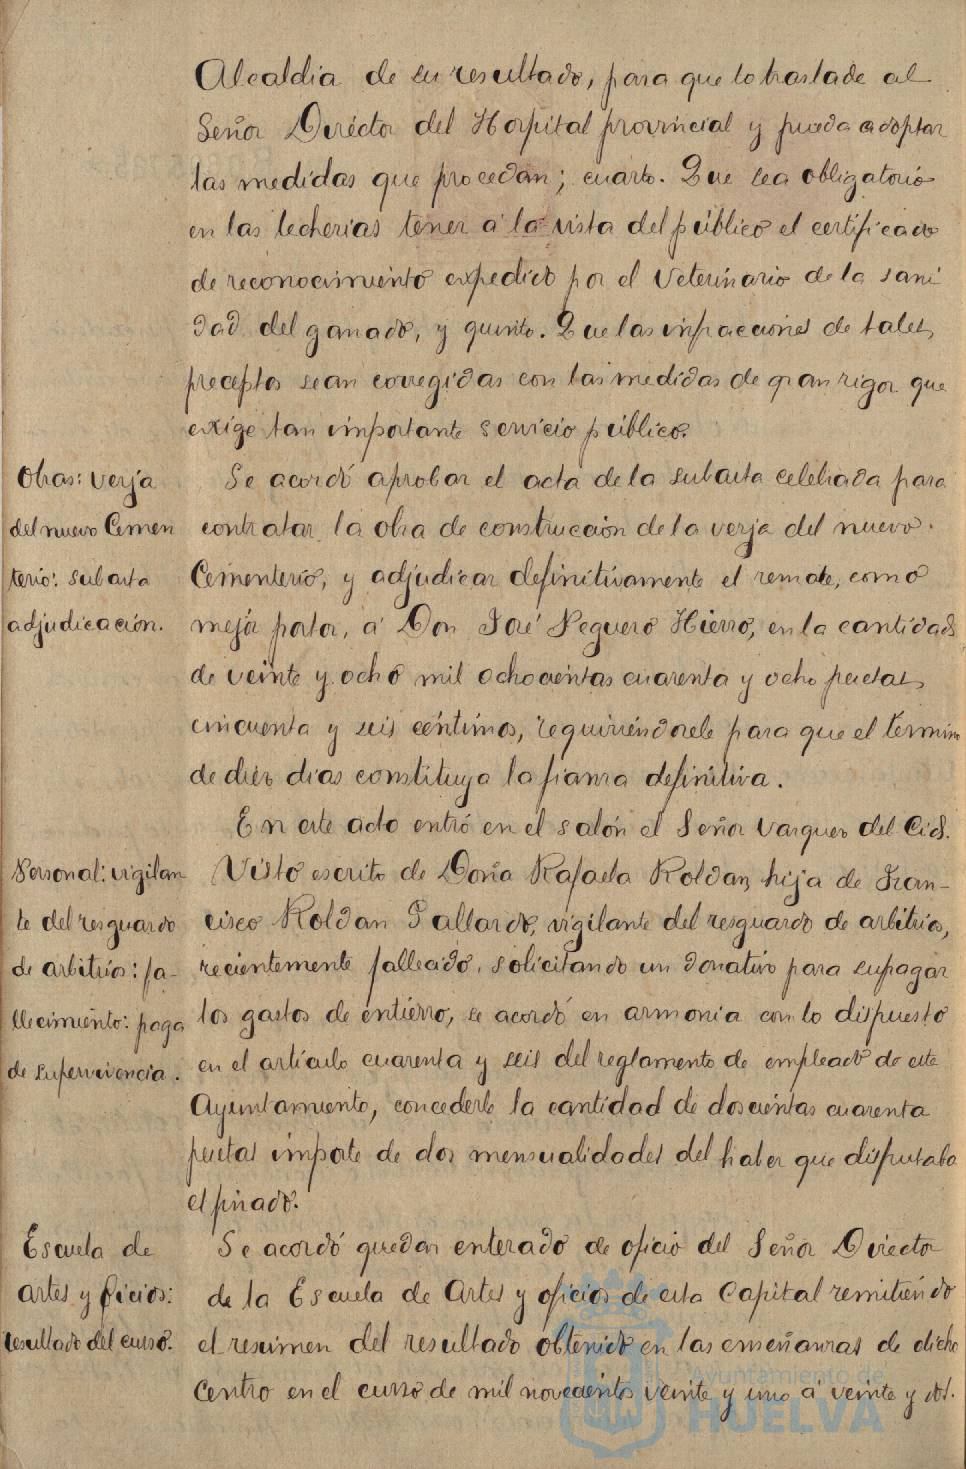 Alcaldia de su resultado, para que lo traslade al
Señor Diréctor del Hospital provincial y pueda adoptar
las medidas que procedan; cuarto. Que sea obligatorio
en las lecherias tener á la vista del público el certificado
de reconocimiento expedido por el Veterinario de la sani
dad del ganado, y quinto. Que las infracciones de tales
preceptos sean corregidas con las medidas de gran rigor que
exige tan importante servicio público.
Obras: verja
del nuevo Cemen
terio: subasta
adjudicación.
Se acordó aprobar el acta de la subasta celebrada para
contratar la obra de construccion de la verja del nuevo
Cementerio, y adjudicar definitivamente el remate, como
mejor postor, á Don José Peguero Hierro, en la cantidad
de veinte y ocho mil ochocientas cuarenta y ocho pesetas
cincuenta y seis céntimos, requiriéndosele para que el término
de diéz dias constituya la fianza definitiva.
En este acto entró en el salón el Señor Vazquez del Cid.
Personal: vigilan
te del resguardo
de arbitrios: fa-
llecimiento: paga
de supervivencia.
Visto escrito de Doña Rafaela Roldan, hija de Fran-
cisco Roldan Gallardo, vigilante del resguardo de arbitrios,
recientemente fallecido, solicitando un donativo para supagar
los gastos de entierro, se acordó en armonia con lo dispuesto
en el artículo cuarenta y seis del reglamento de empleado de este
Ayuntamiento, concederle la cantidad de doscientas cuarenta
pesetas importe de dos mensualidades del haber que disfrutaba
el finado.
Escuela de
artes y oficios:
resultado del curso.
Se acordó quedar enterado de oficio del Señor Director
de la Escuela de Artes y oficios de esta Capital remitiendo
el resumen del resultado obtenido en las enseñanzas de dicho
Centro en el curso de mil novecientos veinte y uno á veinte y dos.
Ayuntamiento de
HUELVA